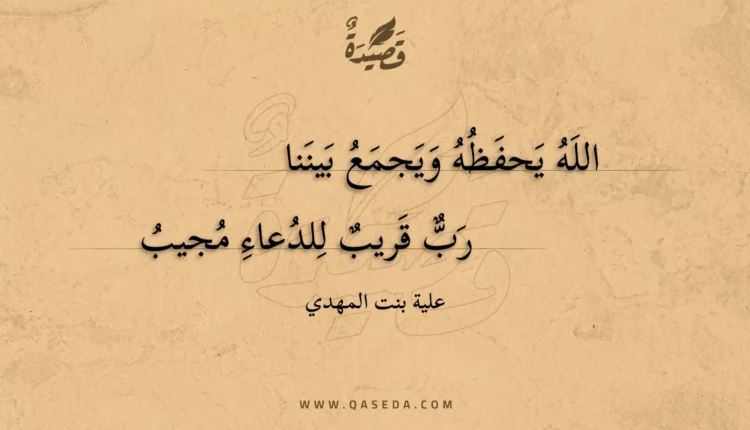 قَصِيدَةٌ
اللَهُ يَحفَظُهُ وَيَجمَعُ بَينَنا
رَبٌّ قَريبٌ لِلدُعاءِ مُجيبُ
علية بنت المهدي
WWW.QASEDA.COM